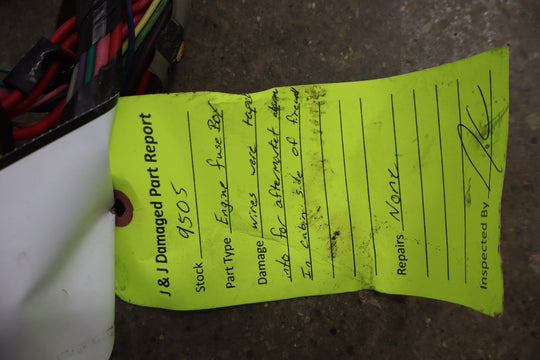 J & J Damaged Part Report
Stock 9505
Part Type Engine fuse Box
Damage wires were taped
into for aftermarket alarm
In cabin side of
Repairs None
Inspected By